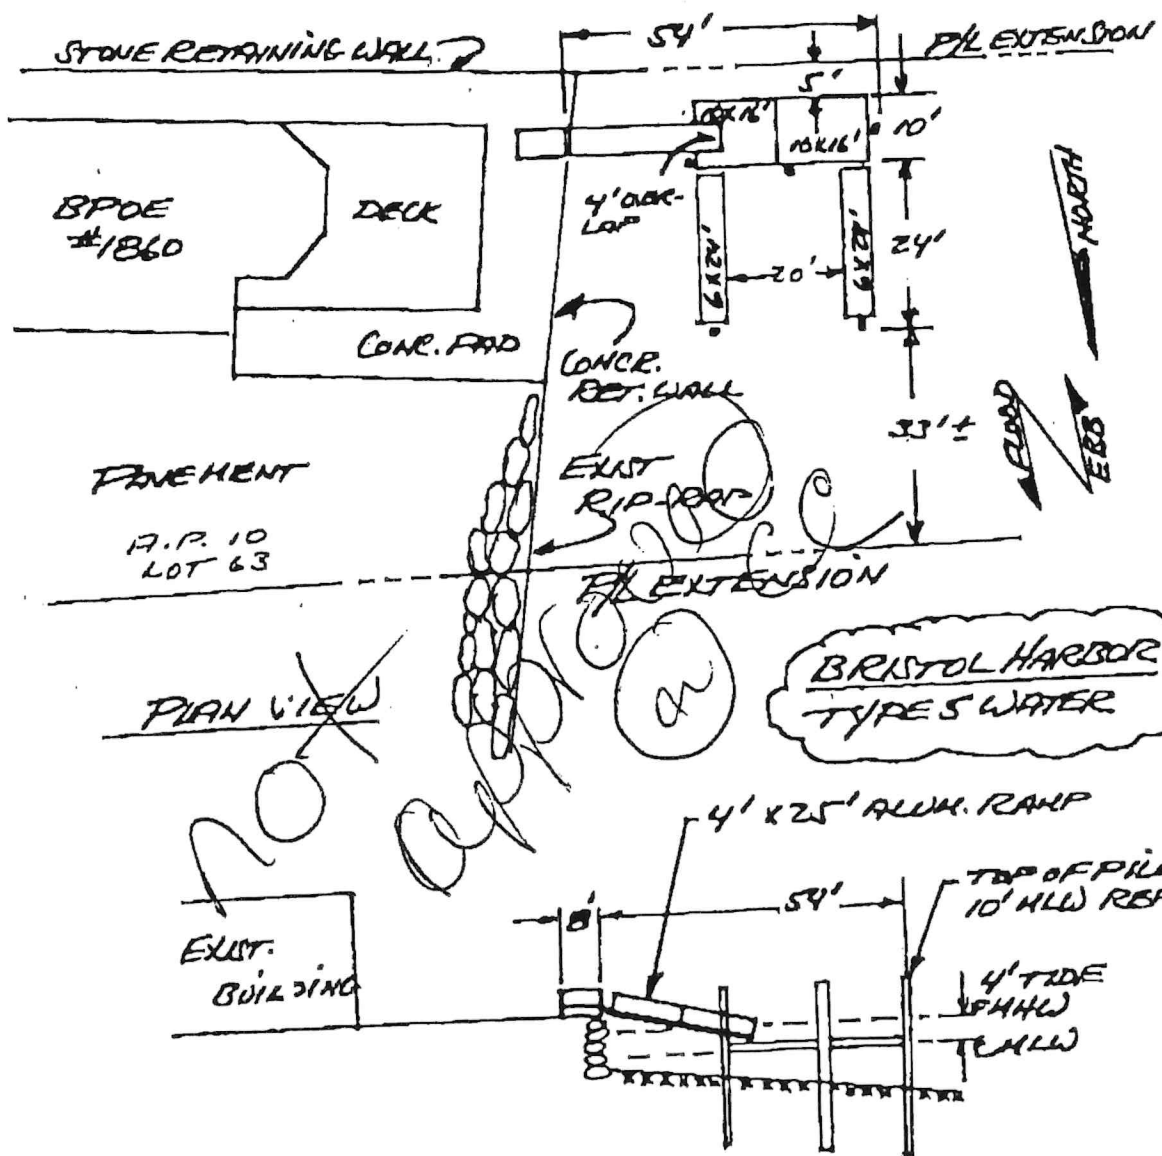 STONE RETAINING WALL
54'
P/L EXTENSION
5'
10X16'
10X16'
10'
BPOE
#1860
DECK
4' OVER-
LAP
6X24'
20'
6X24'
24'
NORTH
CONC. PAD
CONCR.
RET. WALL
33'±
FLOOD
EBB
PAVEMENT
EXIST
RIP-RAP
A.P. 10
LOT 63
P/L EXTENSION
PLAN VIEW
BRISTOL HARBOR
TYPE 5 WATER
no
4' X 25' ALUM. RAMP
8'
54'
TOP OF PIL
10' MLW REF
EXIST.
BUILDING
4' TIDE
MHW
MLW